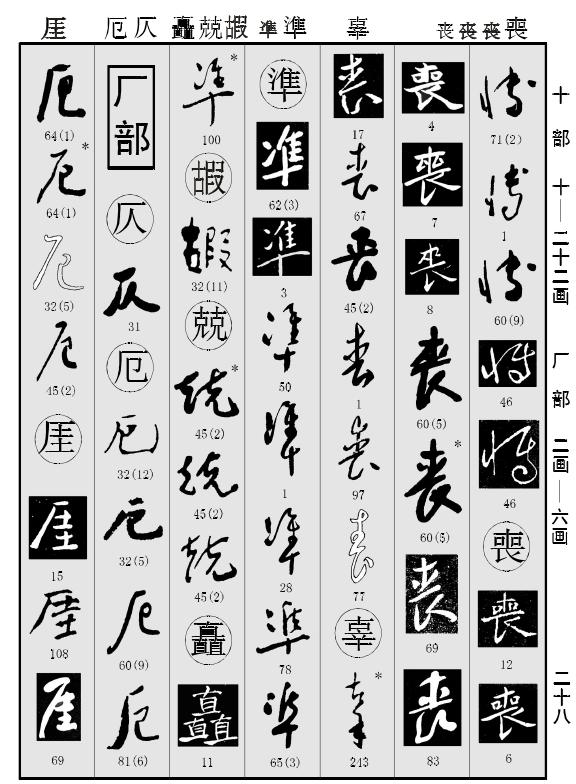 喪
準 凖
辜
嘏兢矗
仄 厄
厓
十部
十—二十二画
厂部
二画—六画
二十八
博
71(2)
博
1
博
60(9)
博
46
博
46
喪
喪
12
喪
6
喪
4
喪
7
喪
8
喪
60(5)
喪*
60(5)
喪
69
喪
83
喪
17
喪
67
喪
45(2)
喪
1
喪
97
喪
77
辜
辜*
243
準
準
62(3)
準
3
準
50
準
1
準
28
準
78
準
65(3)
準*
100
嘏
嘏
32(11)
兢
兢*
45(2)
兢
45(2)
兢
45(2)
矗
矗
11
厂部
仄
仄
31
厄
厄
32(12)
厄
32(5)
厄
60(9)
厄
81(6)
厄
64(1)
厄*
64(1)
厄
32(5)
厄
45(2)
厓
厓
15
厓
108
厓
69